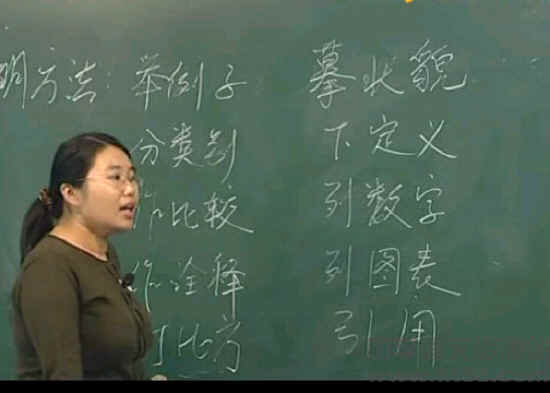 明方法：举例子 摹状貌
分类别 下定义
作比较 列数字
作诠释 列图表
打比方 引用